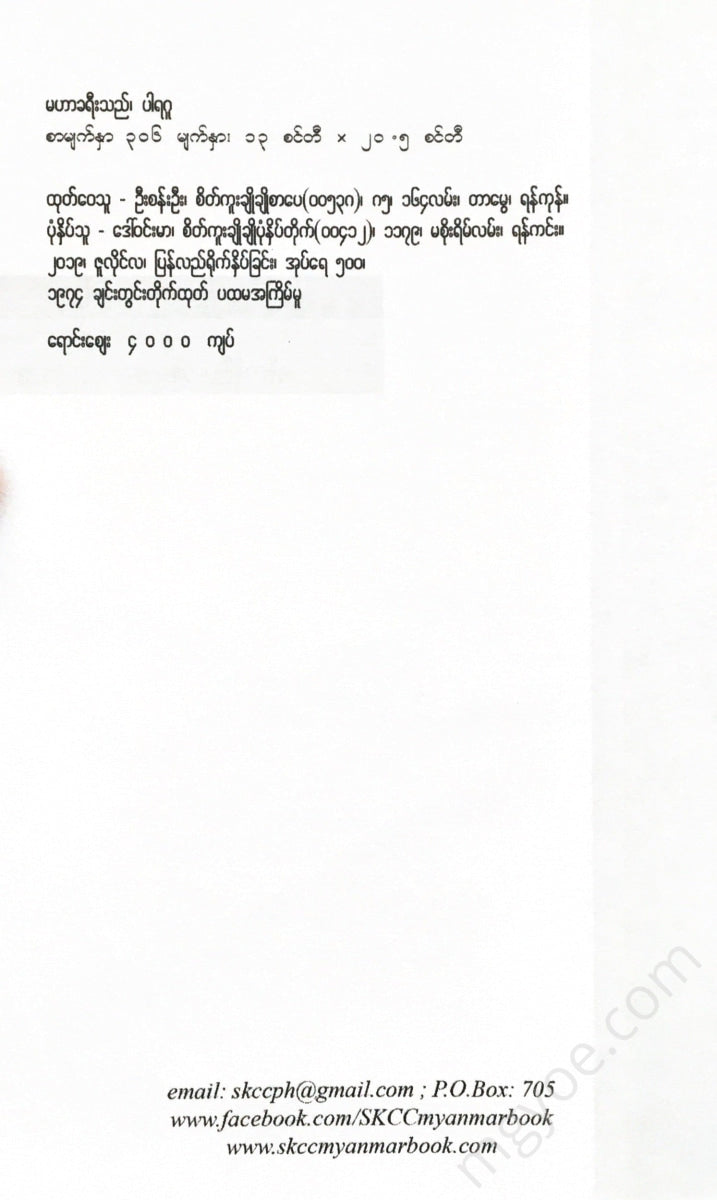 မဟာခရီးသည်၊ ပါရဂူ
စာမျက်နှာ ၃၀၆ မျက်နှာ၊ ၁၃ စင်တီ × ၂၀.၅ စင်တီ
ထုတ်ဝေသူ - ဦးစန်းဦး၊ စိတ်ကူးချိုချိုစာပေ(၀၀၅၃၈)၊ ဂ၅၊ ၁၆၄လမ်း၊ တာမွေ၊ ရန်ကုန်။
ပုံနှိပ်သူ - ဒေါ်ဝင်းမာ၊ စိတ်ကူးချိုချိုပုံနှိပ်တိုက်(၀၀၄၁၂)၊ ၁၁၇၉၊ မစိုးရိမ်လမ်း၊ ရန်ကင်း။
၂၀၁၉၊ ဇူလိုင်လ၊ ပြန်လည်ရိုက်နှိပ်ခြင်း၊ အုပ်ရေ ၅၀၀၊
၁၉၇၄ ချင်းတွင်းတိုက်ထုတ် ပထမအကြိမ်မူ
ရောင်းဈေး ၄၀၀၀ ကျပ်
email: skccph@gmail.com ; P.O.Box: 705
www.facebook.com/SKCCmyanmarbook
www.skccmyanmarbook.com
mgyoe.com